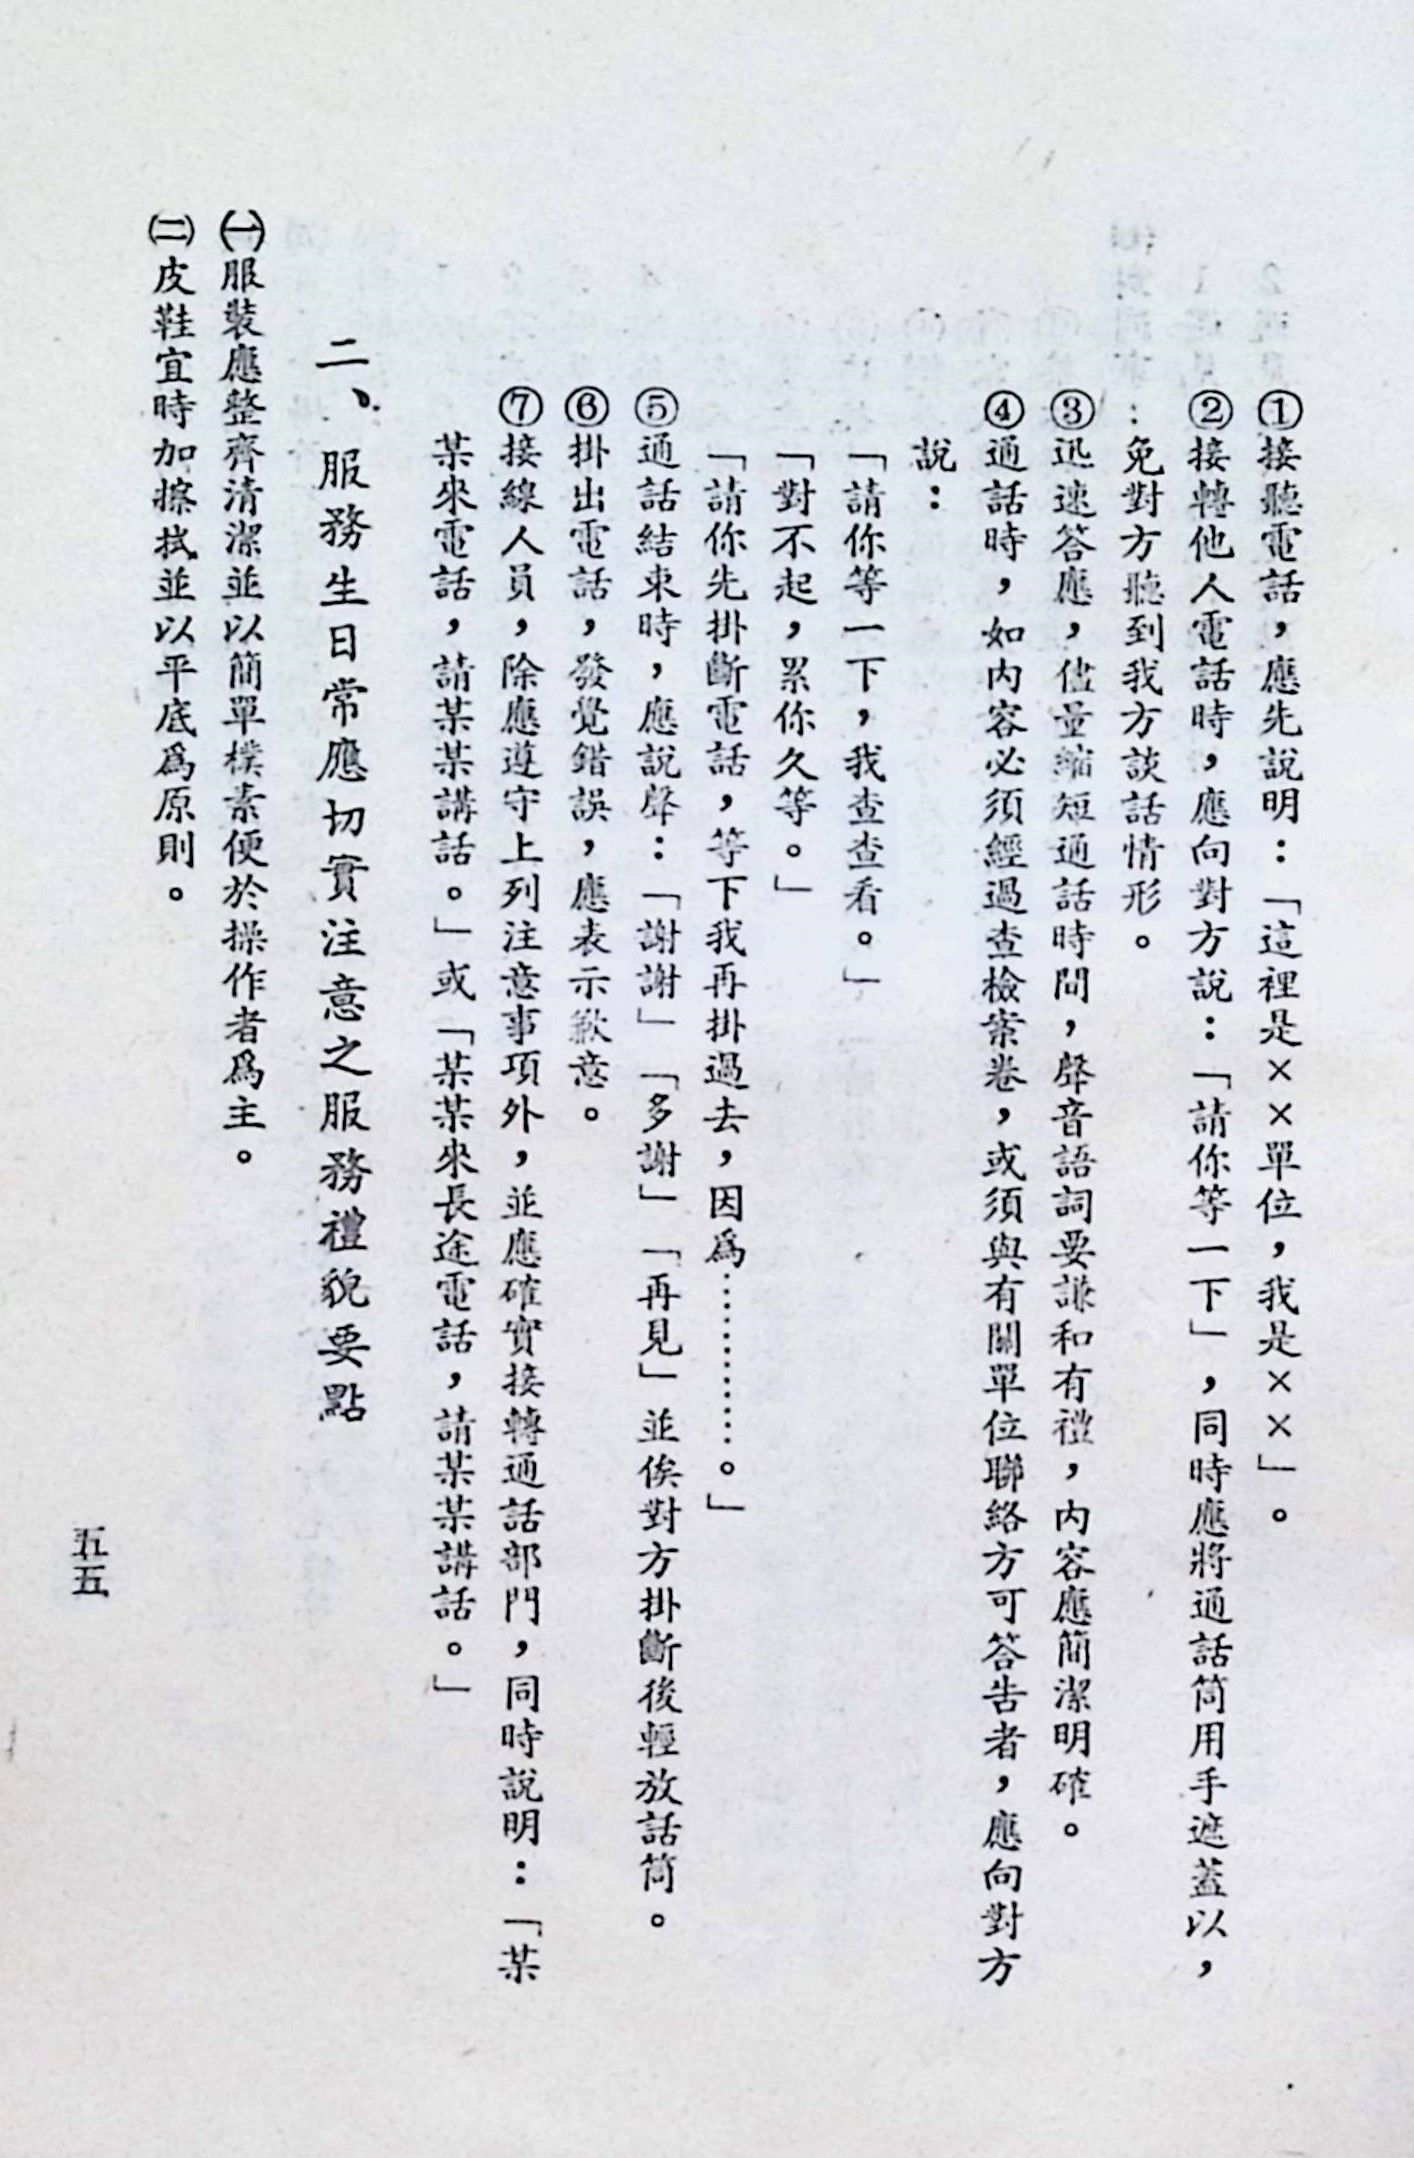 ①接聽電話，應先說明：「這裡是××單位，我是××」。
②接轉他人電話時，應向對方說：「請你等一下」，同時應將通話筒用手遮蓋以，
免對方聽到我方談話情形。
③迅速答應，儘量縮短通話時間，聲音語詞要謙和有禮，內容應簡潔明確。
④通話時，如內容必須經過查檢案卷，或須與有關單位聯絡方可答告者，應向對方
說：
「請你等一下，我查查看。」
「對不起，累你久等。」
「請你先掛斷電話，等下我再掛過去，因爲…………。」
⑤通話結束時，應說聲：「謝謝」「多謝」「再見」並俟對方掛斷後輕放話筒。
⑥掛出電話，發覺錯誤，應表示歉意。
⑦接線人員，除應遵守上列注意事項外，並應確實接轉通話部門，同時說明：「某
某來電話，請某某講話。」或「某某來長途電話，請某某講話。」
二、服務生日常應切實注意之服務禮貌要點
㈠服裝應整齊清潔並以簡單樸素便於操作者爲主。
㈡皮鞋宜時加擦拭並以平底爲原則。
五五